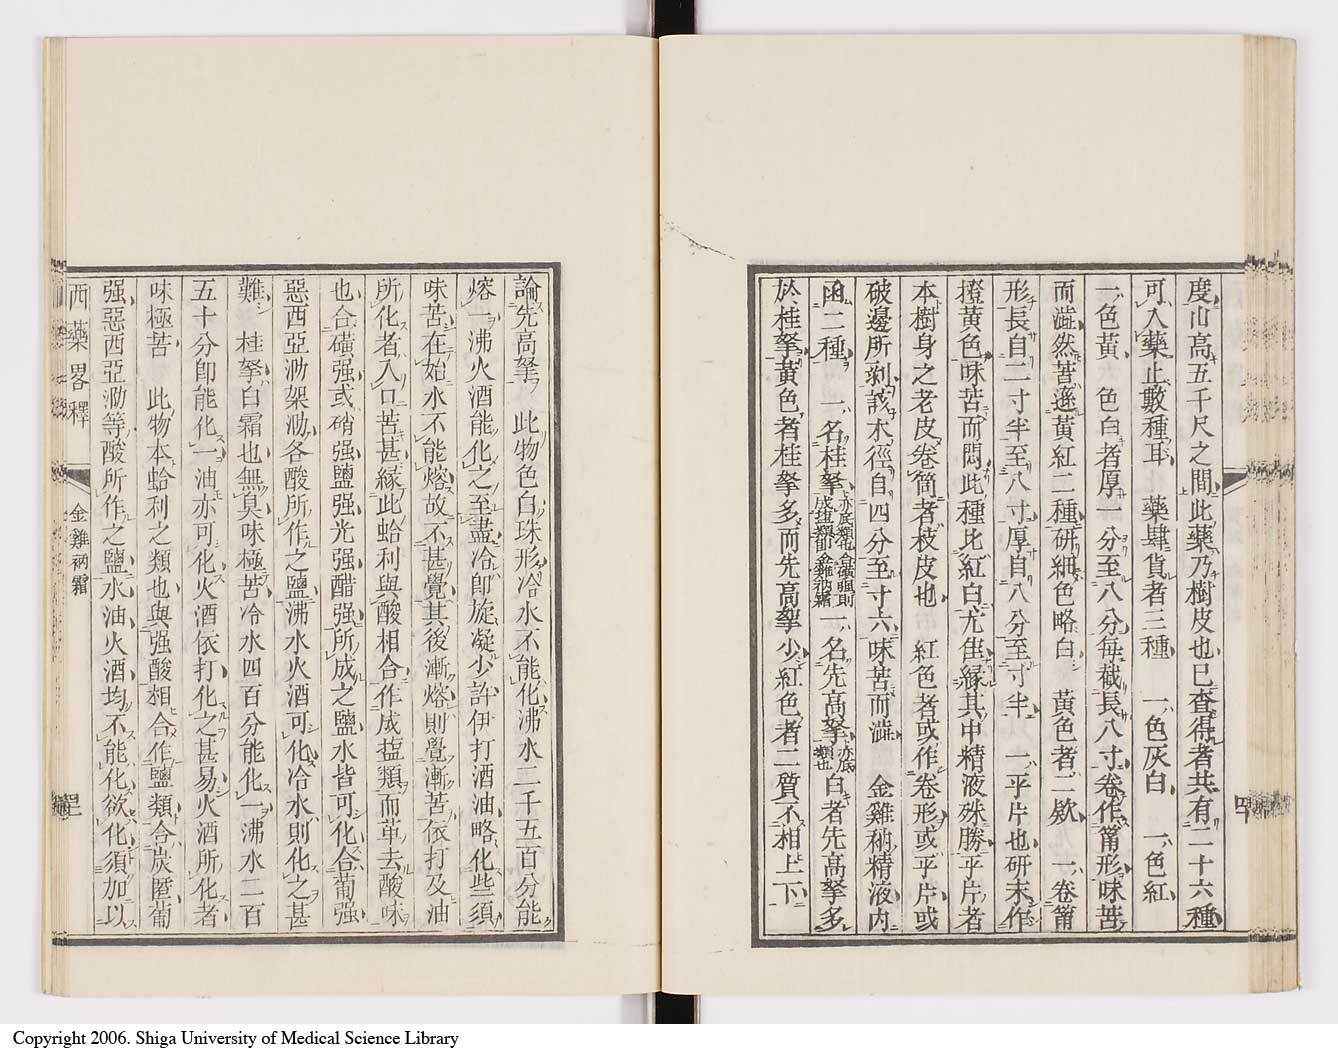 度山高五千尺之間此藥乃樹皮也已査得者共有二十六種
可入藥止數種耳　藥肆貨者三種　一色灰白　一色紅
一色黃　色白者厚一分至八分每截長八寸卷作筩形味苦
而澁然苦遜黃紅二種硏細色略白　黃色者二欵　一卷筩
形長自二寸半至八寸厚自八分至寸半　一平片也研末作
橙黃色味苦而悶此種比紅白尤隹縁其中精液殊勝平片者
本樹身之老皮卷筒者枝皮也　紅色者或作卷形或平片或
破邊所剥該木徑自四分至寸六味苦而澁　金雞衲精液內
函二種　一名桂拏亦底類也合磺强則成塩類卽金雞衲霜一名先高拏亦底類也白者先高拏多
於桂拏黃色者桂拏多而先高拏少紅色者二質不相上下
論先高拏　此物色白珠形冷水不能化沸水二千五百分能
熔一沸火酒能化之至盡冷卽旋凝少許伊打酒油略化些須
味苦在始水不能熔故不甚覺其後漸熔則覺漸苦依打及油
所化者入口苦甚縁此蛤利與酸相合作成塩類而革去酸味
也合磺强或硝强鹽强光强醋强所成之鹽水皆可化合葡强
惡西亞泐架泐各酸所作之鹽沸水火酒可化冷水則化之甚
難　桂拏白霜也無臭味極苦冷水四百分能化一沸水二百
五十分卽能化一油亦可化火酒依打化之甚易火酒所化者
味極苦　此物本蛤利之類也與强酸相合作鹽類合炭匿葡
强惡西亞泐等酸所作之鹽水油火酒均不能化欲化須加以
西藥畧釋
金雞衲霜